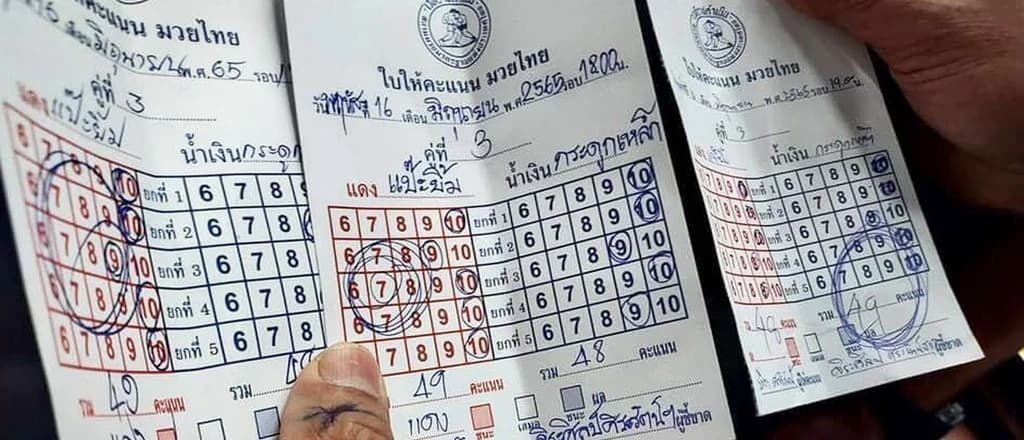 คะแนน มวยไทย
16 เดือน มิถุนายน พ.ศ. 65 รอบ
คู่ที่ 3
แดง แป๊ะยิ้ม
น้ำเงิน กระดูก
7 8 9 10 ยกที่ 1 6 7 8
7 8 9 10 ยกที่ 2 6 7 8
7 8 9 10 ยกที่ 3 6 7 8
7 8 9 10 ยกที่ 4 6 7 8
6 7 8 9 10 ยกที่ 5 6 7 8
รวม 49 คะแนน รวม
แดง ชนะ
ใบให้คะแนน มวยไทย
วันพฤหัสที่ 16 เดือน มิถุนายน พ.ศ. 2565 รอบ 18.00 น.
คู่ที่ 3
แดง แป๊ะยิ้ม น้ำเงิน กระดูกเหล็ก
6 7 8 9 10 ยกที่ 1 6 7 8 9 10
6 7 8 9 10 ยกที่ 2 6 7 8 9 10
6 7 8 9 10 ยกที่ 3 6 7 8 9 10
6 7 8 9 10 ยกที่ 4 6 7 8 9 10
7 8 9 10 ยกที่ 5 6 7 8 9 10
49 คะแนน รวม 48 คะแนน
แดง ชนะ เสมอ ชนะ ผู้ชี้ขาด
ใบให้คะแนน มวยไทย
พ.ศ. 2565 รอบ
คู่ที่ 3
น้ำเงิน กระดูกเหล็ก
7 8 9 ยกที่ 1 6 7 8 9 10
7 8 9 ยกที่ 2 6 7 8 9 10
7 8 9 10 ยกที่ 3 6 7 8 9 10
7 8 9 10 ยกที่ 4 6 7 8 9 10
7 8 9 10 ยกที่ 5 6 7 8 9 10
คะแนน รวม 49 คะแนน
ผู้ชี้ขาด